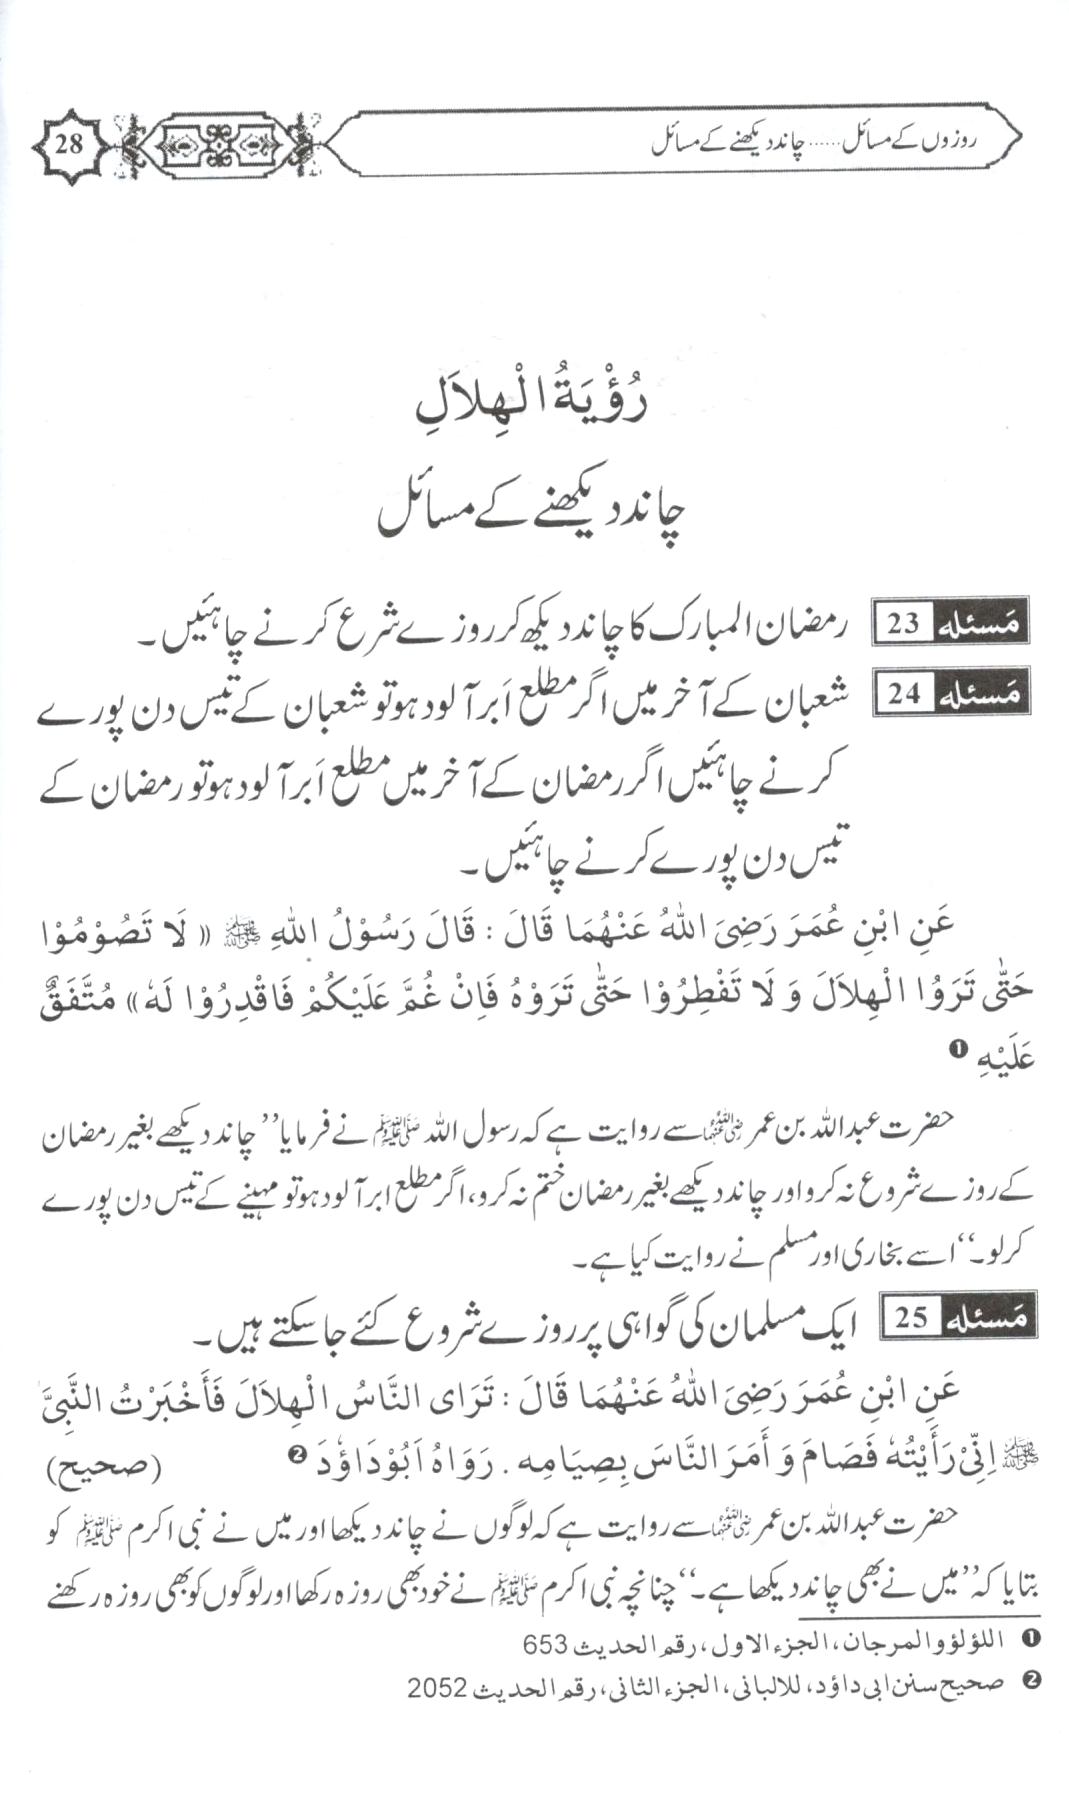 روزوں کے مسائل ...... چاند دیکھنے کے مسائل
28
رُؤْيَةُ الْهِلاَلِ
چاند دیکھنے کے مسائل
مَسئله 23 رمضان المبارک کا چاند دیکھ کر روزے شرع کرنے چاہئیں۔
مَسئله 24 شعبان کے آخر میں اگر مطلع اَبر آلود ہو تو شعبان کے تیس دن پورے
کرنے چاہئیں اگر رمضان کے آخر میں مطلع اَبر آلود ہو تو رمضان کے
تیس دن پورے کرنے چاہئیں۔
عَنِ ابْنِ عُمَرَ رَضِىَ اللهُ عَنْهُمَا قَالَ : قَالَ رَسُوْلُ اللهِ ﷺ (( لَا تَصُوْمُوْا
حَتّٰى تَرَوُا الْهِلاَلَ وَ لَا تَفْطِرُوْا حَتّٰى تَرَوْهُ فَاِنْ غُمَّ عَلَيْكُمْ فَاقْدِرُوْا لَهٗ )) مُتَّفَقٌ
عَلَيْهِ ❶
حضرت عبداللہ بن عمر رضی اللہ عنہما سے روایت ہے کہ رسول اللہ ﷺ نے فرمایا ’’چاند دیکھے بغیر رمضان
کے روزے شروع نہ کرو اور چاند دیکھے بغیر رمضان ختم نہ کرو، اگر مطلع ابر آلود ہو تو مہینے کے تیس دن پورے
کرلو۔‘‘ اسے بخاری اور مسلم نے روایت کیا ہے۔
مَسئله 25 ایک مسلمان کی گواہی پر روزے شروع کئے جا سکتے ہیں۔
عَنِ ابْنِ عُمَرَ رَضِىَ اللهُ عَنْهُمَا قَالَ : تَرَاى النَّاسُ الْهِلاَلَ فَأَخْبَرْتُ النَّبِىَّ
ﷺ اِنِّىْ رَأَيْتُهٗ فَصَامَ وَ أَمَرَ النَّاسَ بِصِيَامِه . رَوَاهُ اَبُوْدَاوٗدَ ❷ (صحيح)
حضرت عبداللہ بن عمر رضی اللہ عنہما سے روایت ہے کہ لوگوں نے چاند دیکھا اور میں نے نبی اکرم ﷺ کو
بتایا کہ ’’میں نے بھی چاند دیکھا ہے۔‘‘ چنانچہ نبی اکرم ﷺ نے خود بھی روزہ رکھا اور لوگوں کو بھی روزہ رکھنے
❶ اللؤلؤ والمرجان، الجزء الاول، رقم الحديث 653
❷ صحيح سنن ابى داؤد، للالبانى، الجزء الثانى، رقم الحديث 2052